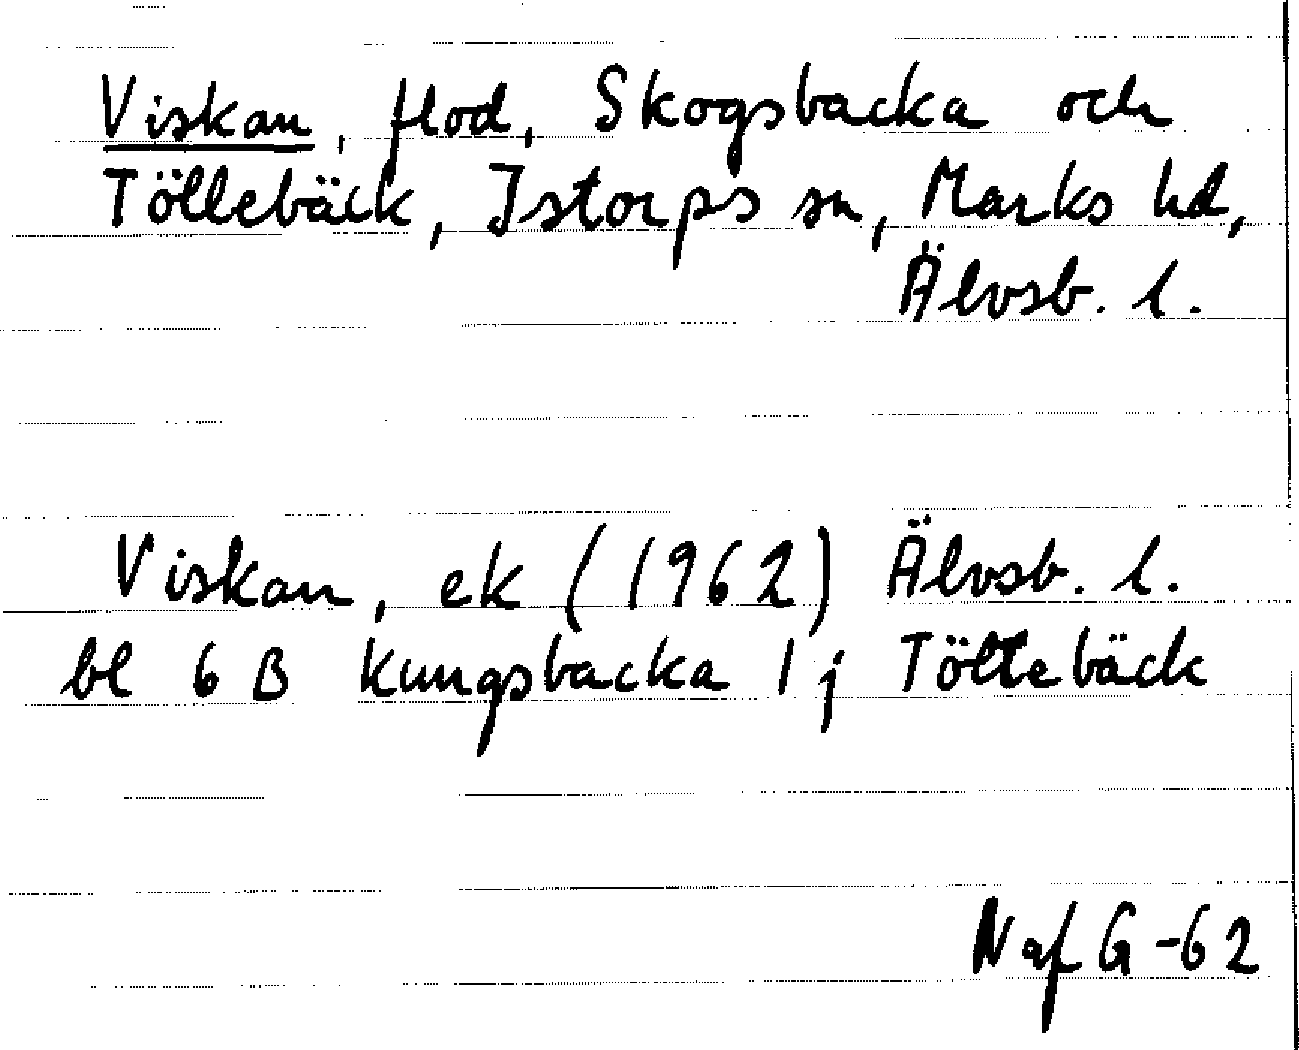 Viskan, flod, Skogsbacka och
Töllebäck, Istorps sn, Marks hd,
Älvsb. l.
Viskan, ek (1962) Älvsb. l.
bl 6 B Kungsbacka 1 j Töllebäck
N af G -62